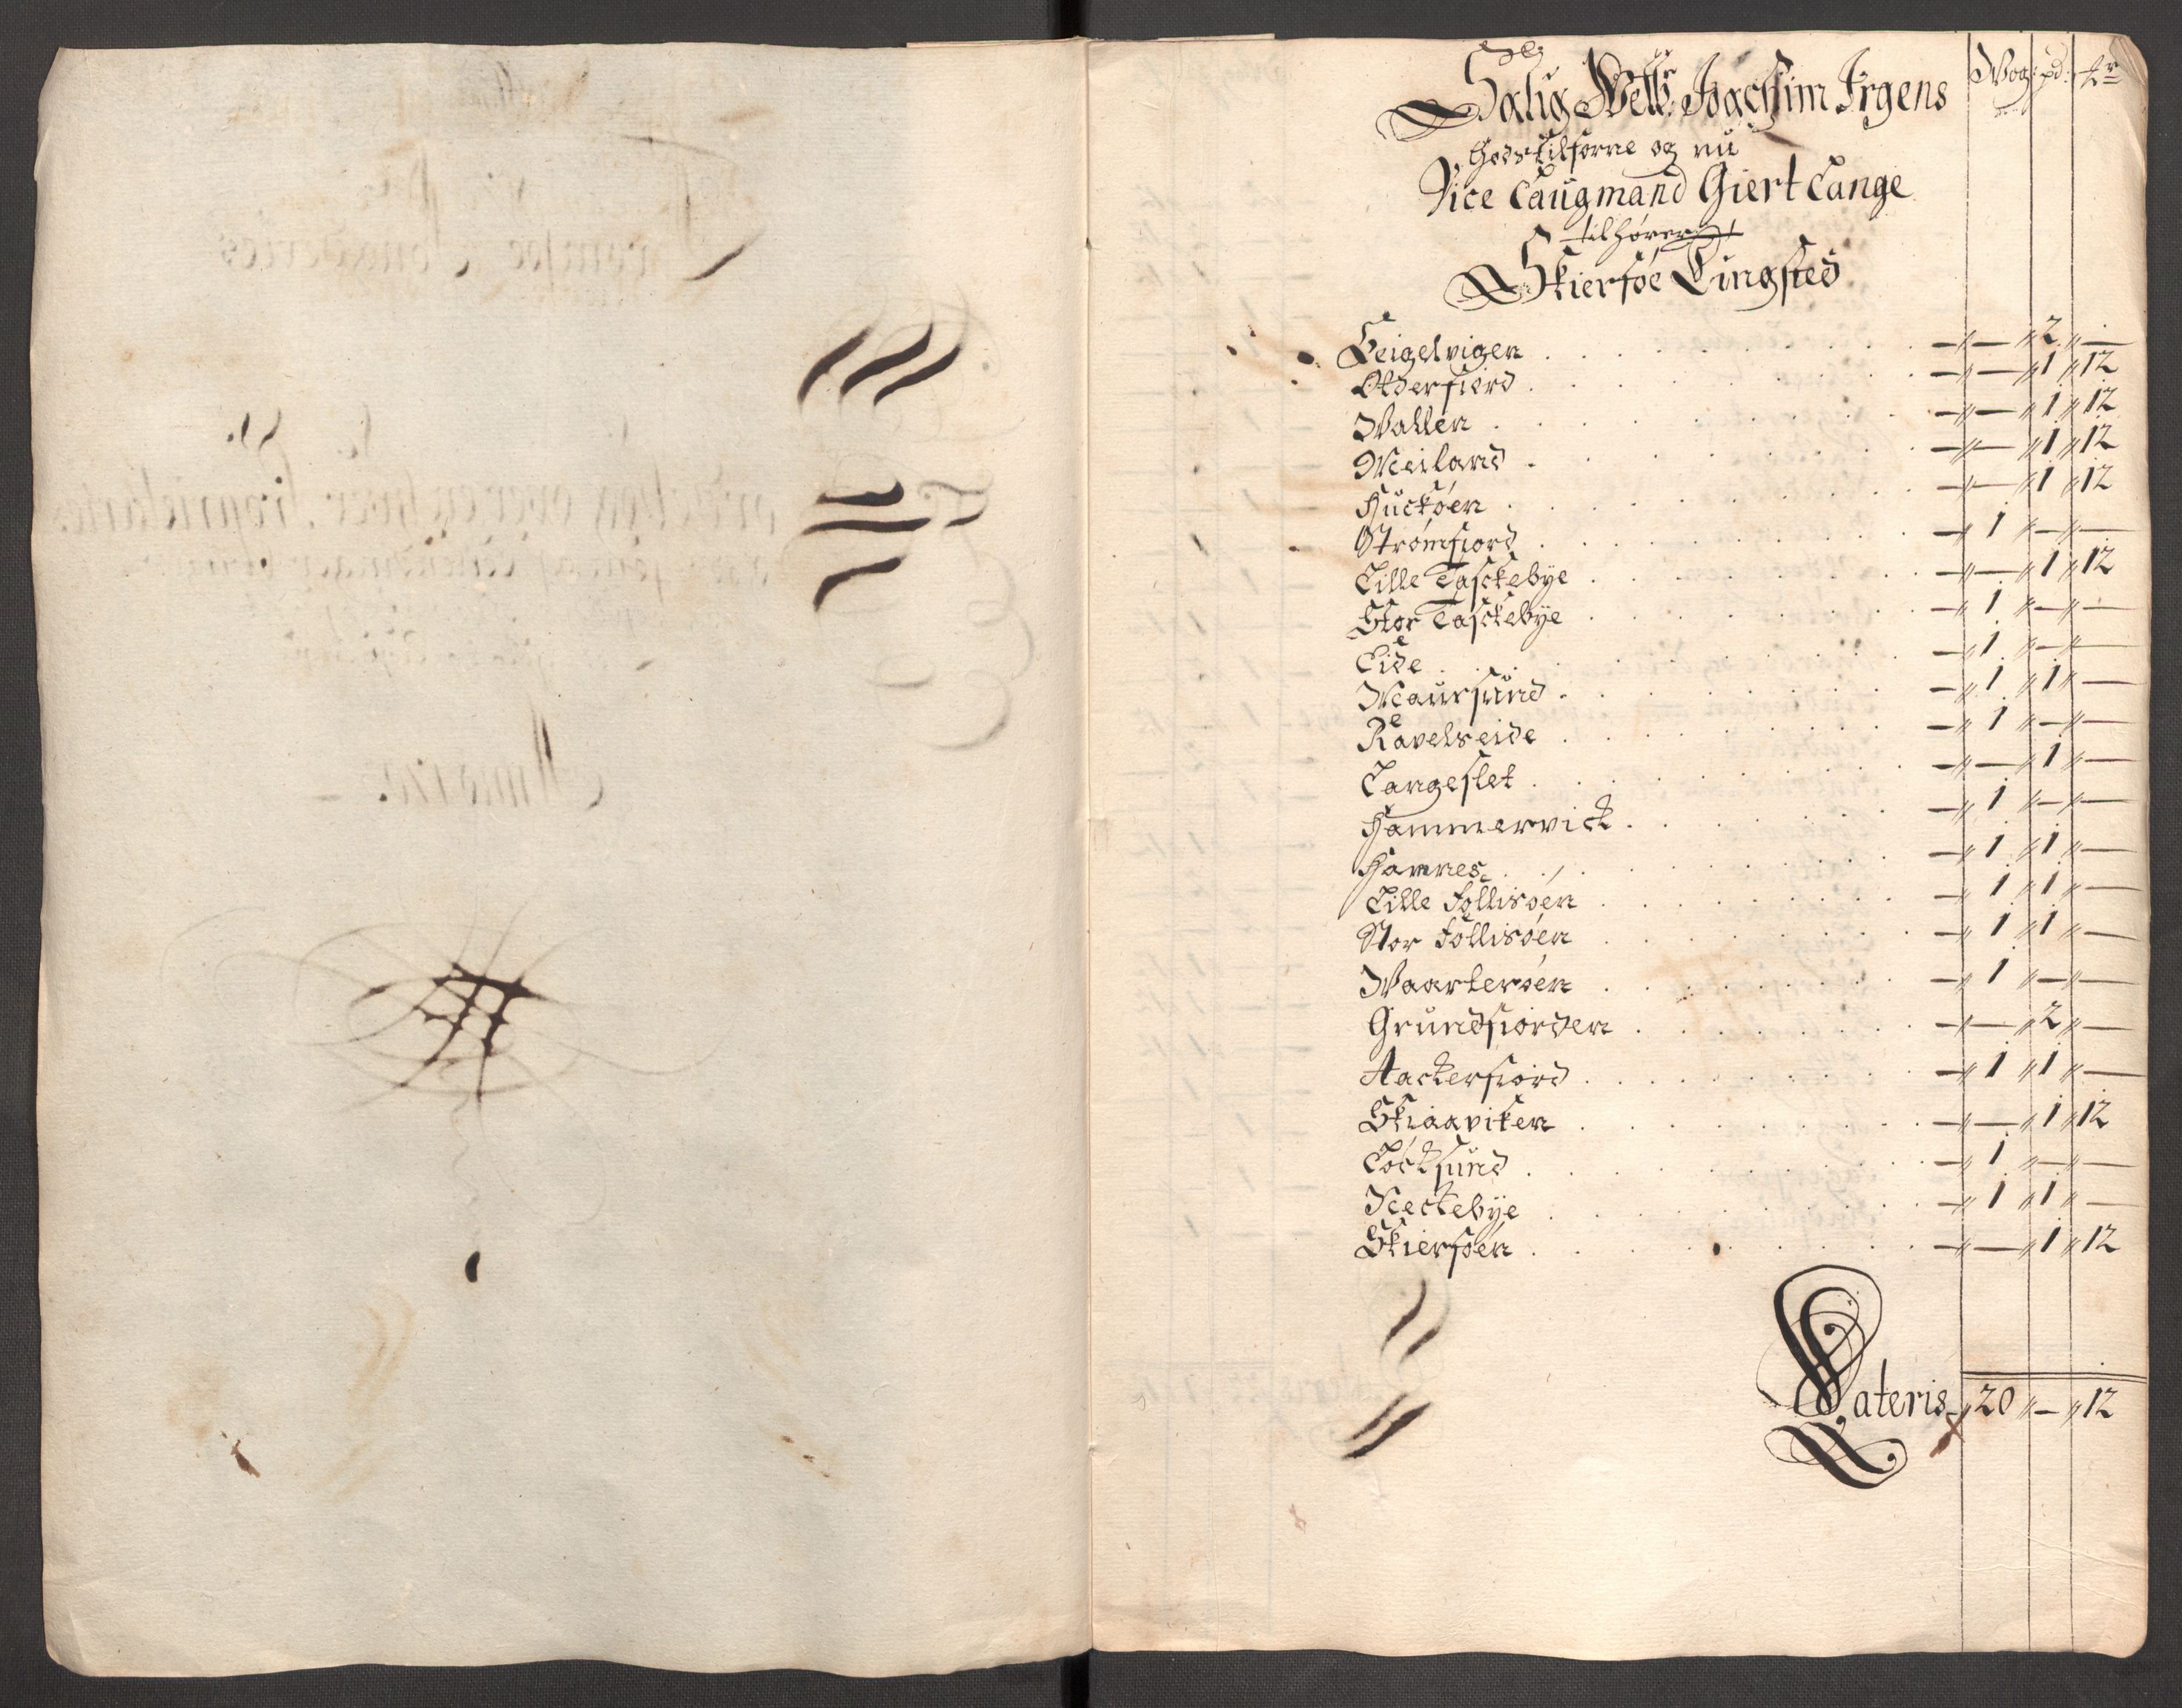 Wog: pd: [?]
Salig Welb: Joachim Irgens
Godstilforne og nu
Vice Laugmand Giert Lange
tilhører
Skiersøe Tingsted
Seigelvigen . . . . — 2 —
Olderfiord . . . . — 1 12
Wallen . . . . — 1 12
Meiland . . . . — 1 12
Huckøen . . . . — 1 12
Strømfiord . . . . 1 — —
Lille Taschebye . . . . — 1 12
Stor Taschebye . . . . 1 — —
Eide . . . . 1 — —
Maursund . . . . 1 1 —
Ravelseide . . . . 1 — —
Langeslet . . . . — 1 —
Hammervick . . . . 1 — —
Hamnes . . . . 1 1 —
Lille Follisøen . . . . 1 1 —
Stor Follisøen . . . . 1 1 —
Waarterøen . . . . 1 — —
Grundfiorden . . . . — 2 —
Aackerfiord . . . . 1 1 —
Skiaaviken . . . . — 1 12
Løcksund . . . . 1 — —
Meckebye . . . . 1 1 —
Skiersøen . . . . — 1 12
Lateris 20 — 12